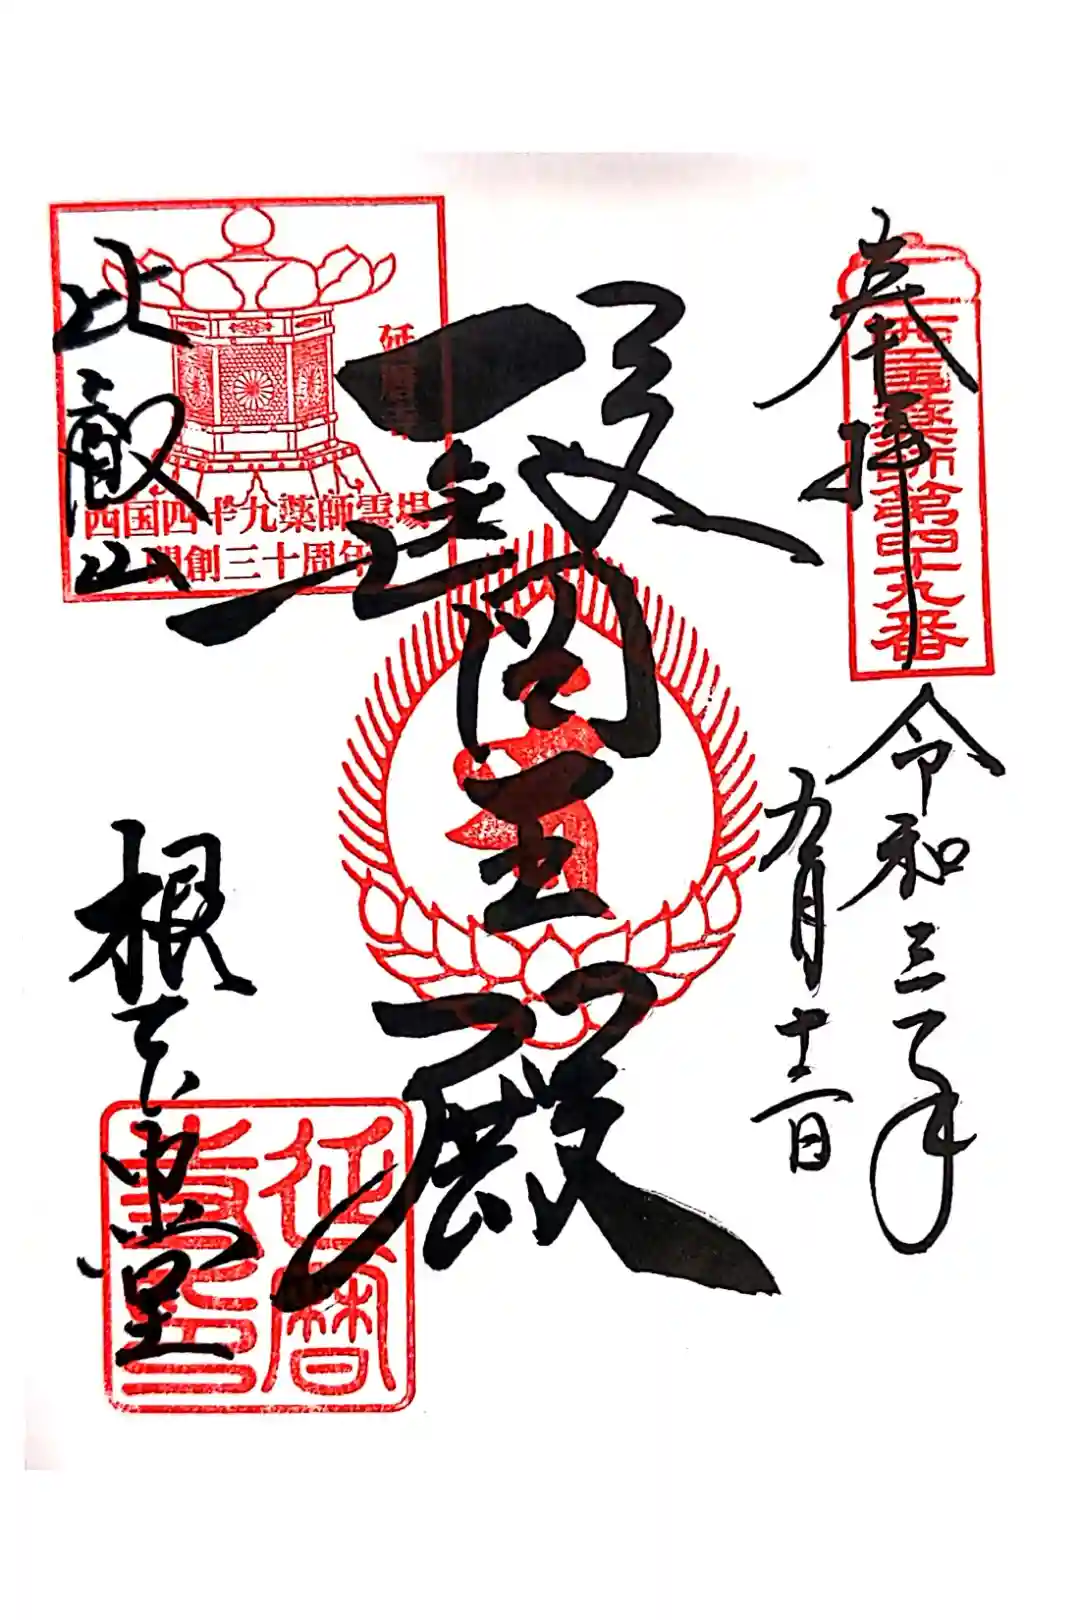 奉拝
西国薬師第四十九番
令和三年
九月十二日
醫王殿
延暦寺
西国四十九薬師霊場
開創三十周年
比叡山
根本中堂
延暦
寺印